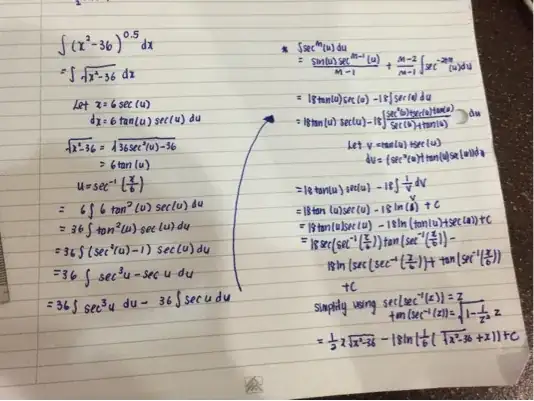 ∫(x²-36)^0.5 dx
= ∫√(x²-36) dx
Let x = 6 sec(u)
dx = 6 tan(u) sec(u) du
√(x²-36) = √(36sec²(u)-36)
= 6tan(u)
u = sec⁻¹(x/6)
= 6∫ 6 tan²(u) sec(u) du
= 36∫ tan²(u) sec(u) du
= 36∫ (sec²(u)-1) sec(u) du
= 36 ∫ sec³u - sec u du
= 36∫ sec³u du - 36∫ sec u du
* ∫sec^m(u) du
= sin(u) sec^(m-1)(u) / m-1 + m-2 / m-1 ∫ sec^(-2+m)(u) du
= 18tan(u) sec(u) - 18∫ sec(u) du
= 18tan(u) sec(u) - 18∫ sec²(u)+sec(u)tan(u) / sec(u)+tan(u) du
Let v = tan(u) + sec(u)
dv = (sec²(u)+tan(u)sec(u))du
= 18tan(u) sec(u) - 18∫ 1/v dv
= 18tan(u)sec(u) - 18ln(v) + C
= 18tan(u)sec(u) - 18ln(tan(u)+sec(u)) + C
= 18sec(sec⁻¹(x/6)) tan(sec⁻¹(x/6)) -
18ln(sec(sec⁻¹(x/6)) + tan(sec⁻¹(x/6))
+C
simplify using sec(sec⁻¹(z)) = z
tan(sec⁻¹(z)) = √(1-1/z²) z
= 1/2 x√(x²-36) - 18ln(1/6(√(x²-36) + x)) + C